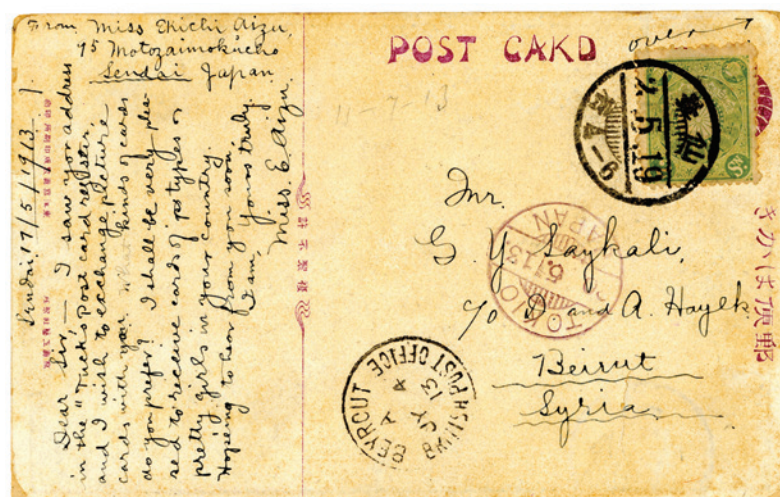 From Miss Ekichi Aizu,
75 Motozaimokucho
Sendai Japan
Sendai 17/5/1913
Dear Sir, — I saw your address
in the "Tuck's Post card register,"
and I wish to exchange picture
cards with you. What kinds of cards
do you prefer? I shall be very plea-
sed to receive cards of types or
pretty girls in your country.
Hopeing to hear from you soon,
I am, yours truly,
Miss. E. Aizu.
POST CARD
over
11-7-13
仙臺
2.5.19
Mr.
G. Y. Saykali,
c/o D and A. Hayek
Beirut
Syria
TOKIO
JAPAN
BRITISH POST OFFICE
BEYROUT
A
JY 4
13
きがは便郵